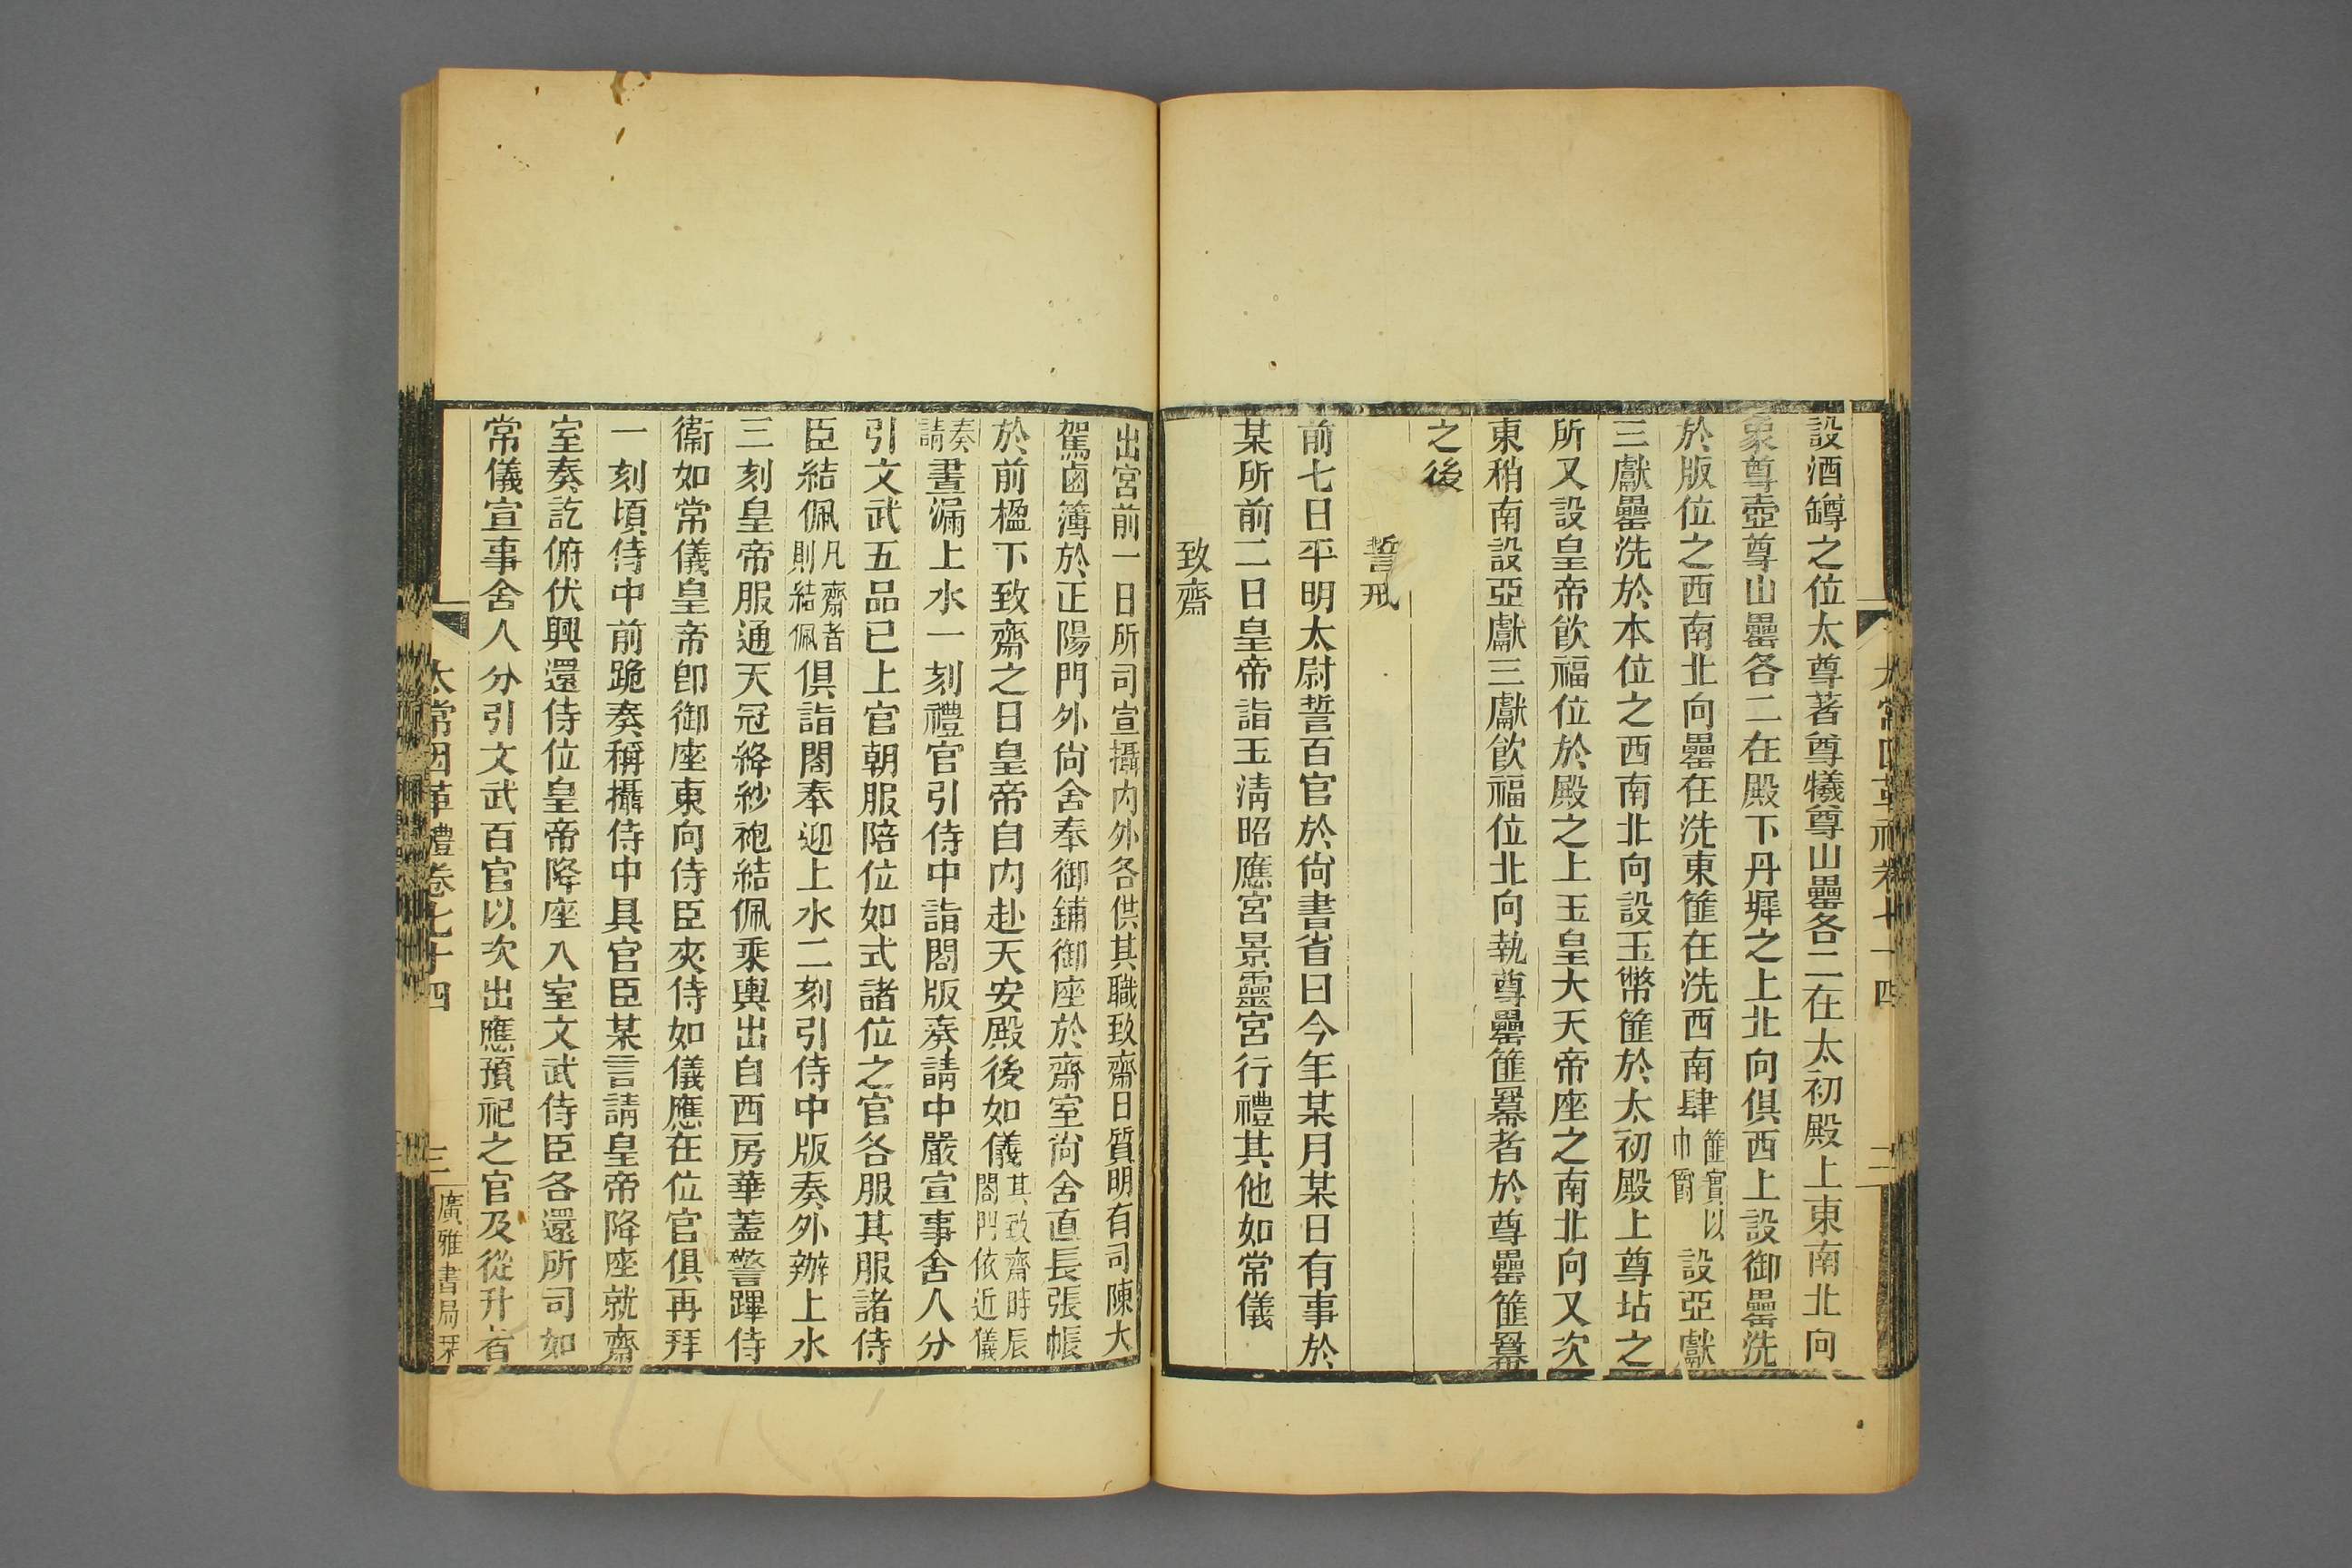 設酒罇之位太尊著尊犧尊山罍各二在太初殿上東南北向
象尊壺尊山罍各二在殿下丹墀之上北向俱西上設御罍洗
於版位之西南北向罍在洗東篚在洗西南肆篚實以巾爵設亞獻
三獻罍洗於本位之西南北向設玉幣篚於太初殿上尊坫之
所又設皇帝飮福位於殿之上玉皇大天帝座之南北向又次
東稍南設亞獻三獻飮福位北向執尊罍篚羃者於尊罍篚羃
之後
誓戒
前七日平明太尉誓百官於尙書省曰今年某月某日有事於
某所前二日皇帝詣玉淸昭應宮景靈宮行禮其他如常儀
致齋
出宮前一日所司宣攝內外各供其職致齋日質明有司陳大
駕鹵簿於正陽門外尙舍奉御鋪御座於齋室尙舍直長張帳
於前楹下致齋之日皇帝自內赴天安殿後如儀其致齋時辰閤門依近儀
奏請晝漏上水一刻禮官引侍中詣閤版奏請中嚴宣事舍人分
引文武五品已上官朝服陪位如式諸位之官各服其服諸侍
臣結佩凡齋者則結佩俱詣閤奉迎上水二刻引侍中版奏外辦上水
三刻皇帝服通天冠絳紗袍結佩乘輿出自西房華蓋警蹕侍
衞如常儀皇帝卽御座東向侍臣夾侍如儀應在位官俱再拜
一刻頃侍中前跪奏稱攝侍中具官臣某言請皇帝降座就齋
室奏訖俯伏興還侍位皇帝降座入室文武侍臣各還所司如
常儀宣事舍人分引文武百官以次出應預祀之官及從升者
太常因革禮卷七十四
三
廣雅書局栞